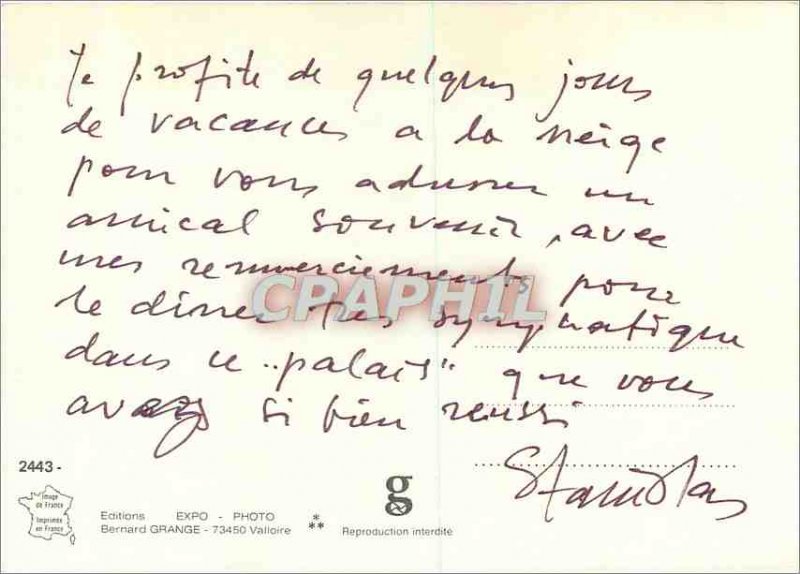 Je profite de quelques jours
de vacances a la neige
pour vous adresser un
amical souvenir, avec
mes remerciements pour
le diner très sympathique
dans ce "palais" que vous
avez si bien reussi
Stanislas
CPAPHIL
2443 -
Image
de France
Imprimée
en France
Editions EXPO - PHOTO
Bernard GRANGE - 73450 Valloire
*
**
g
Reproduction interdite